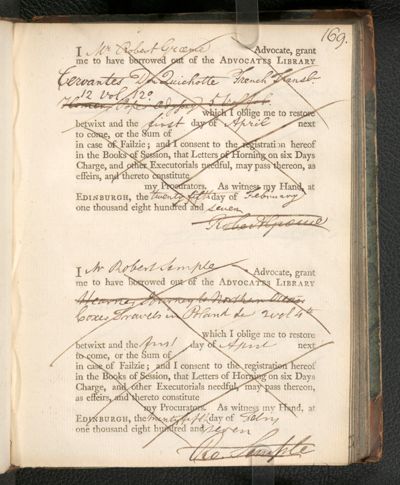 169.
I Mr Robert Graeme Advocate, grant
me to have borrowed out of the ADVOCATES LIBRARY
Cervantes Don Quichotte French Transl.
12 vol 12o
Homer 5
which I oblige me to restore
betwixt and the first day of April next
to come, or the Sum of
in case of Failzie; and I consent to the registration hereof
in the Books of Session, that Letters of Horning on six Days
Charge, and other Executorials needful, may pass thereon, as
effeirs, and thereto constitute
my Procurators. As witness my Hand, at
EDINBURGH, the twenty fifth day of February
one thousand eight hundred and seven
Robert Graeme
I Mr Robert Semple Advocate, grant
me to have borrowed out of the ADVOCATES LIBRARY
Hearnes Journey to Northern Ocean
Coxes Travels in Poland &c 2 vol 4to
which I oblige me to restore
betwixt and the first day of April next
to come, or the Sum of
in case of Failzie; and I consent to the registration hereof
in the Books of Session, that Letters of Horning on six Days
Charge, and other Executorials needful, may pass thereon,
as effeirs, and thereto constitute
my Procurators. As witness my Hand, at
EDINBURGH, the twenty fifth day of Febry
one thousand eight hundred and seven
Ro Semple